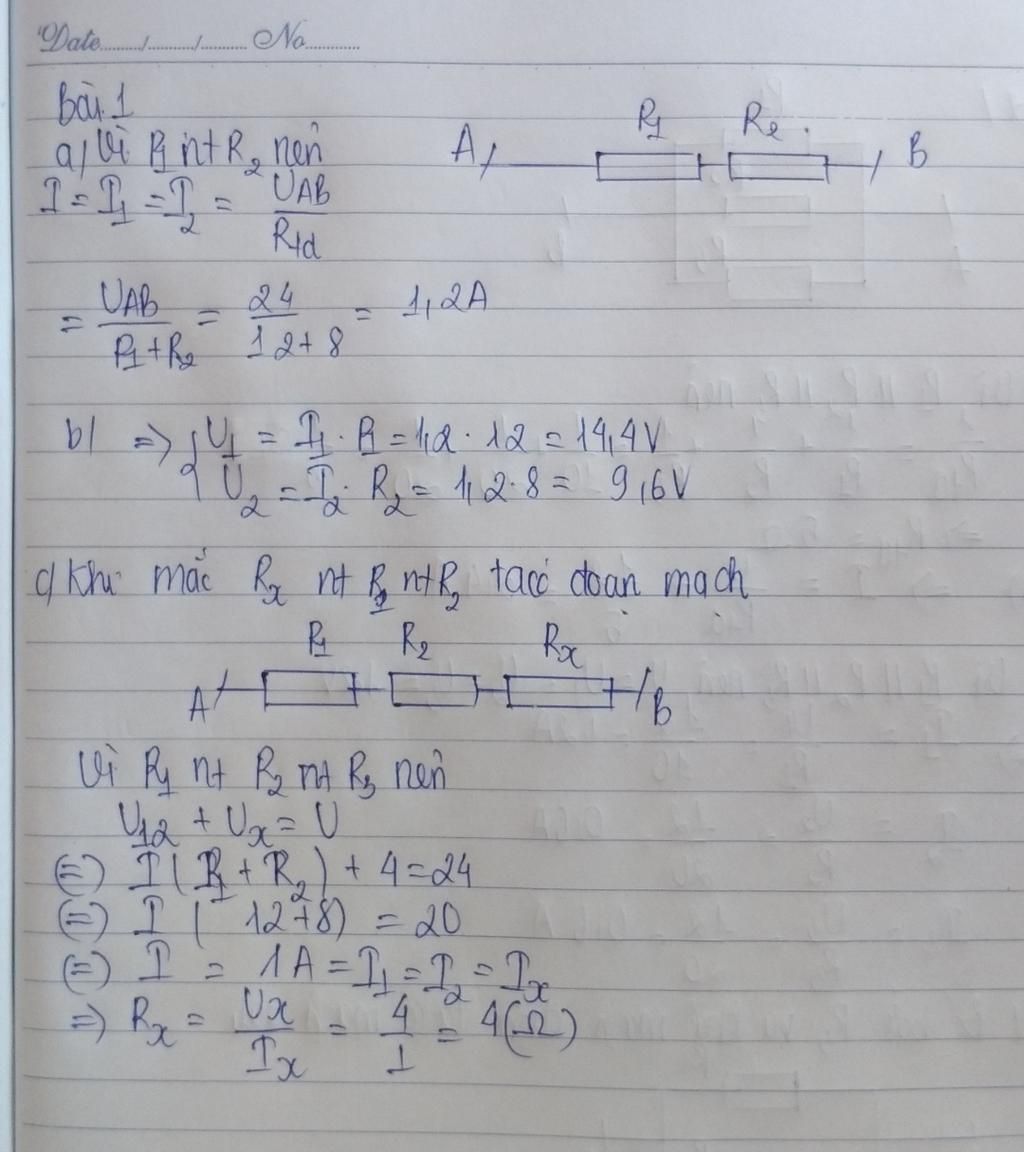 Date......../........../.......... No............
Bài 1
a) Vì R1 nt R2 nên
I = I1 = I2 = UAB / Rtđ
A R1 R2 B
= UAB / R1+R2 = 24 / 12+8 = 1,2A
b) => { U1 = I1 . R1 = 1,2 . 12 = 14,4V
U2 = I2 . R2 = 1,2 . 8 = 9,6V
c) Khi mắc Rx nt R1 nt R2 ta có đoạn mạch
R1 R2 Rx
A B
Vì R1 nt R2 nt R3 nên
U12 + Ux = U
(=) I ( R1 + R2 ) + 4 = 24
(=) I ( 12+8) = 20
(=) I = 1A = I1 = I2 = Ix
=> Rx = Ux / Ix = 4 / 1 = 4(Ω)